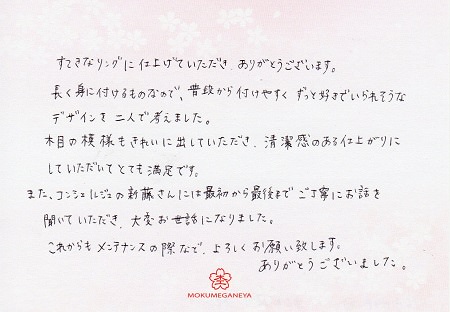 すてきなリングに仕上げていただき、ありがとうございます。
長く身に付けるものなので、普段から付けやすく ずっと好きでいられそうな
デザインを 二人で考えました。
木目の模様もきれいに出していただき、清潔感のある仕上がりに
していただいてとても満足です。
また、コンシェルジュの新藤さんには最初から最後まで ご丁寧にお話を
聞いていただき、大変お世話になりました。
これからも メンテナンスの際など、よろしくお願い致します。
ありがとうございました。
MOKUMEGANEYA